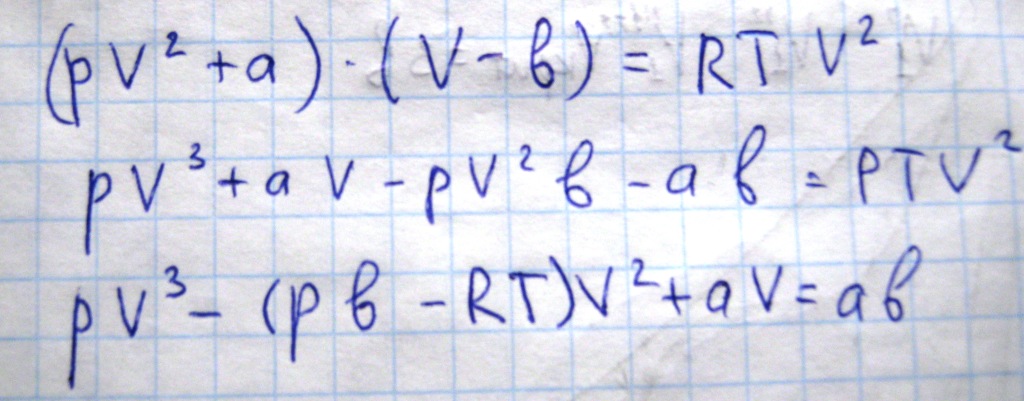 (pV²+a)·(V-в)=RTV²
pV³+aV-pV²в-aв=PTV²
pV³-(pв-RT)V²+aV=aв